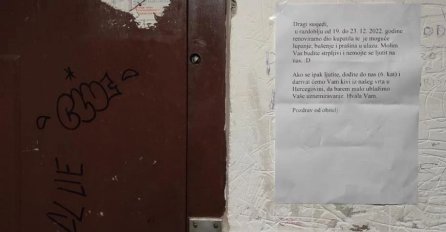 Dragi susjedi,
u razdoblju od 19. do 23. 12. 2022. godine
renoviramo dio kupatila te je moguće
lupanje, bušenje i prašina u ulazu. Molim
Vas budite strpljivi i nemojte se ljutit na
nas. :D
Ako se ipak ljutite, dođite do nas (6. kat) i
darivat ćemo Vam kivi iz našeg vrta u
Hercegovini, da barem malo ublažimo
Vaše uznemiravanje. Hvala Vam.
Pozdrav od obitelj